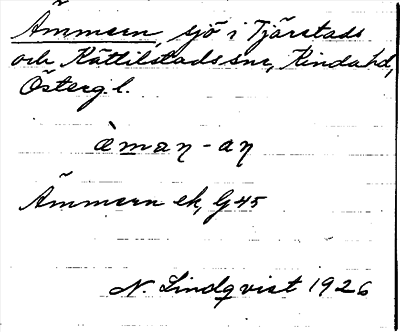 Ämmern, sjö i Tjärstads
och Kättilstads snr, Kinda hd,
Österg. l.
àmaƞ - aƞ
Ämmern ek, G 45
N. Lindqvist 1926